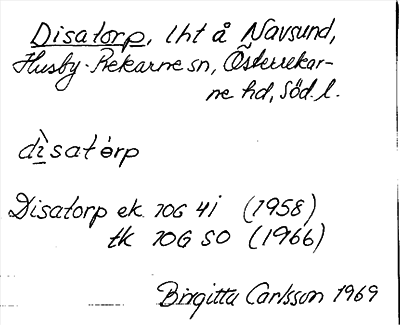 Disatorp, lht å Navsund,
Husby-Rekarne sn, Österrekar-
ne hd, Söd. l.
dìsatòrp
Disatorp ek. 10G 4i (1958)
tk 10G SO (1966)
Birgitta Carlsson 1969